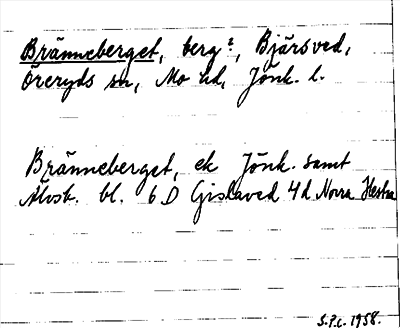 Bränneberget, berg?, Bjärsved,
Öreryds sn, Mo hd, Jönk. l.
Bränneberget, ek Jönk. samt
Älvsb. bl. 6 D Gislaved 4d Norra Hestra
S.P.C. 1958.